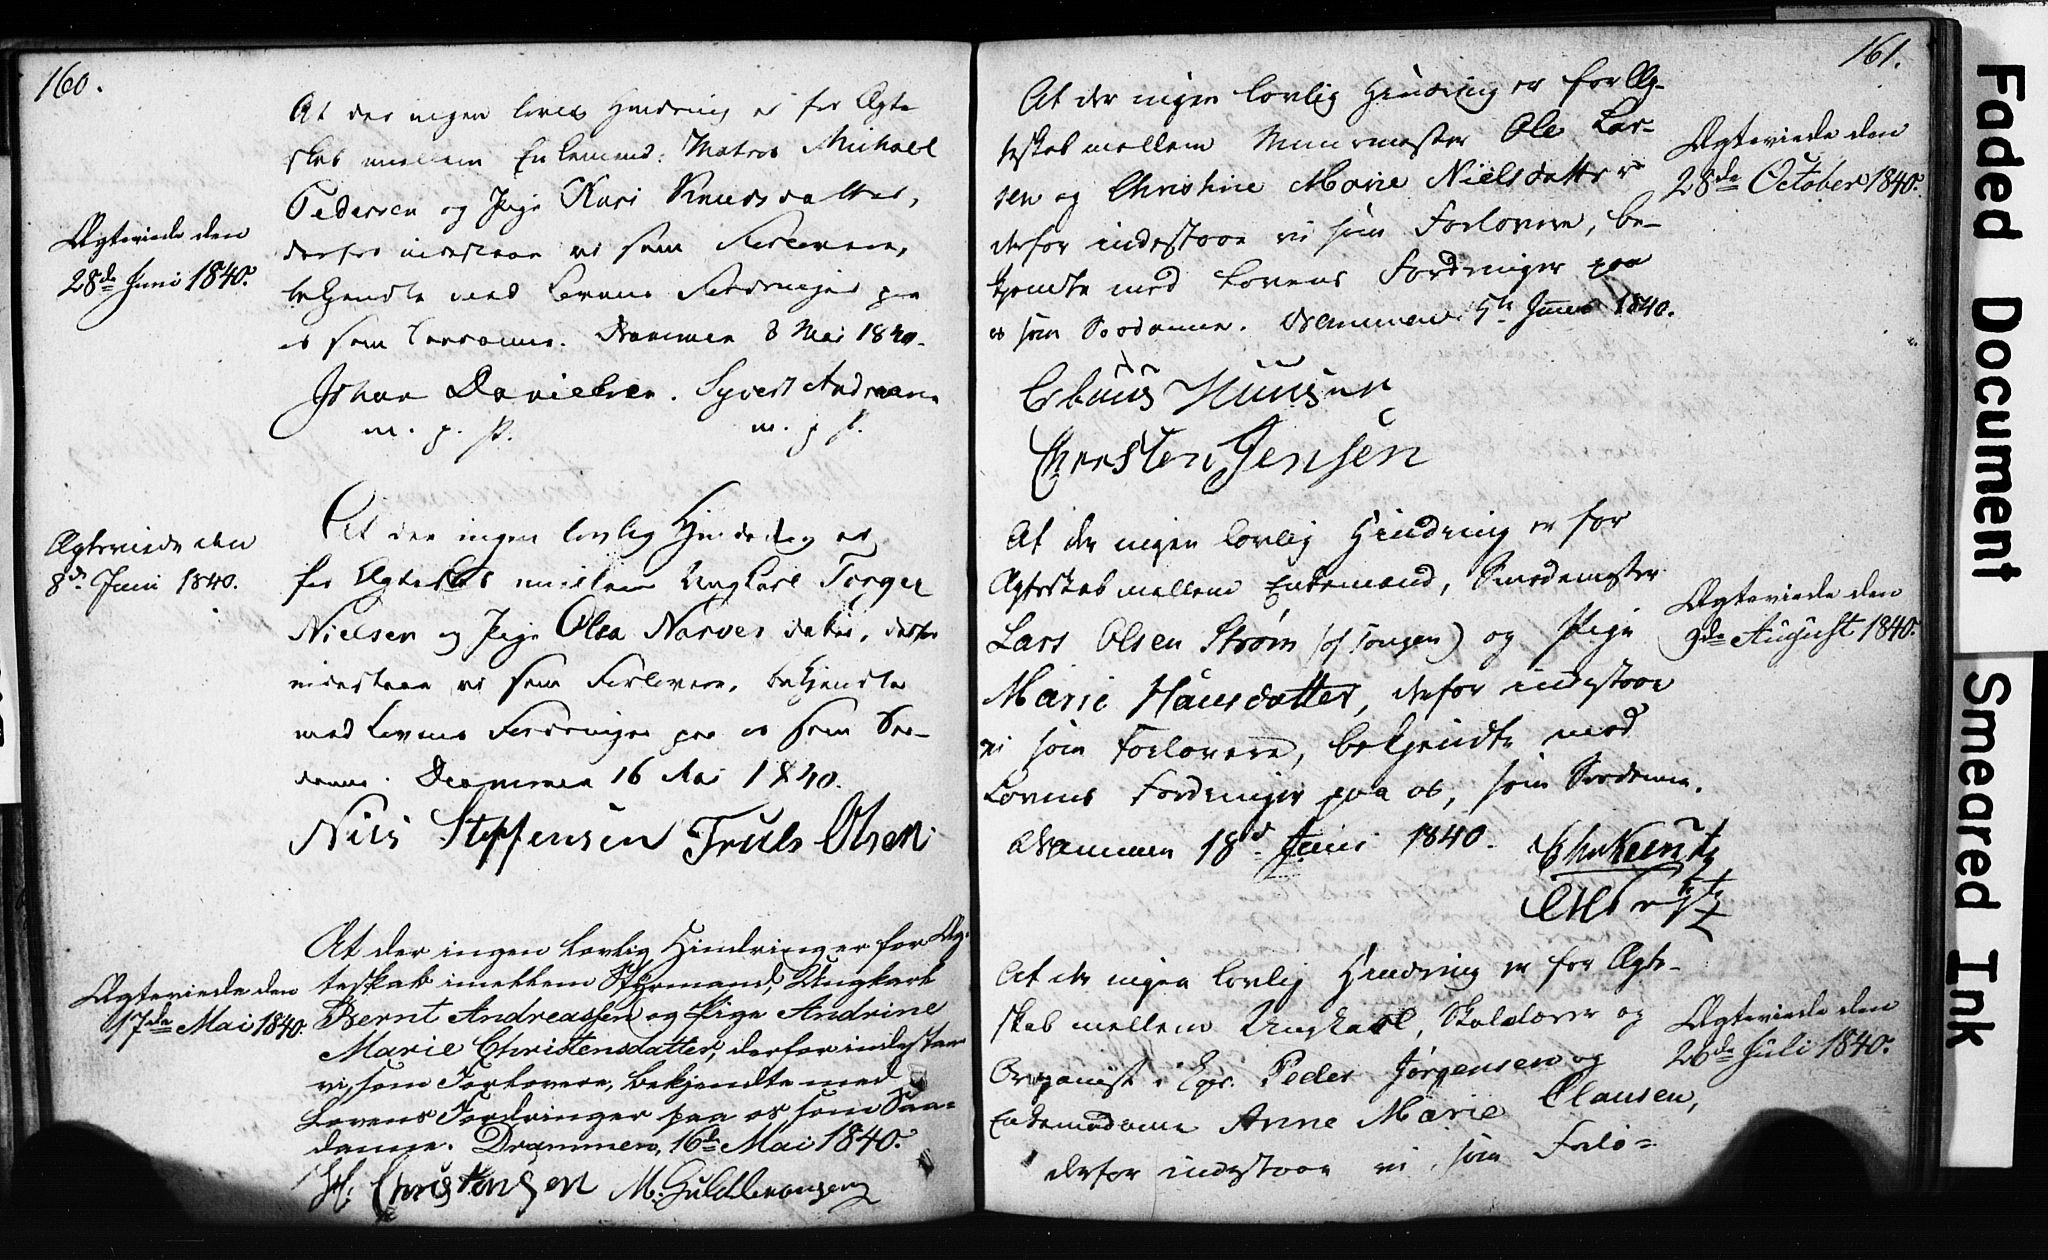 160.
At der ingen lovlig Hindring er for Ægte
skab mellem Enkemand, Matros Michael
Pedersen og Pige Kari Knudsdatter,
derfor indestaae vi som Forlovere,
bekjendte med Lovens Fordringer paa
os som Saadanne. Drammen 8 Mai 1840.
Johan Danielsen. Syvert Andreasen
m. p. p. m. p. p.
Ægteviede den
28de Juni 1840.
At der ingen lovlig Hindring er
for Ægteskab mellem Ungkarl Torger
Nielsen og Pige Olea Narvesdatter, derfor
indestaae vi som Forlovere, bekjendte
med Lovens Fordringer paa os som Saa-
danne. Drammen 16 Mai 1840.
Nils Steffensen Truls Olsen
Ægteviede den
8de Juni 1840.
At der ingen lovlig Hindring er for Æg-
teskab mellem Styrmand, Ungkarl
Bernt Andreassen og Pige Andrine
Marie Christensdatter, derfor indestaae
vi, som Forlovere, bekjendte med
Lovens Fordringer paa os som Saa-
danne. Drammen, 16de Mai 1840.
H. Christensen M. Guldbransen
Ægteviede den
17de Mai 1840.
161.
At der ingen lovlig Hindring er for Æg-
teskab mellem Muurmester Ole Lar-
sen og Christine Marie Nielsdatter
derfor indestaae vi som Forlovere, be-
kjendte med Lovens Fordringer paa
os som Saadanne. Drammen 5te Juni 1840.
Hansen
Christen Jensen
Ægteviede den
28de October 1840.
At der ingen lovlig Hindring er for
Ægteskab mellem Enkemand, Smedemester
Lars Olsen Strøm (af Tangen) og Pige
Marie Hansdatter, derfor indestaae
vi som Forlovere, bekjendte med
Lovens Fordringer paa os, som Saadanne.
Drammen 18de Juni 1840.
Ægteviede den
9de August 1840.
At der ingen lovlig Hindring er for Ægte-
skab mellem Ungkarl, Skolelærer og
Organist i Eger Peder Jørgensen og
Enkemadame Anne Marie Clausen,
derfor indestaae vi, som Forlo-
Ægteviede den
26de Juli 1840.
Faded Document Smeared Ink